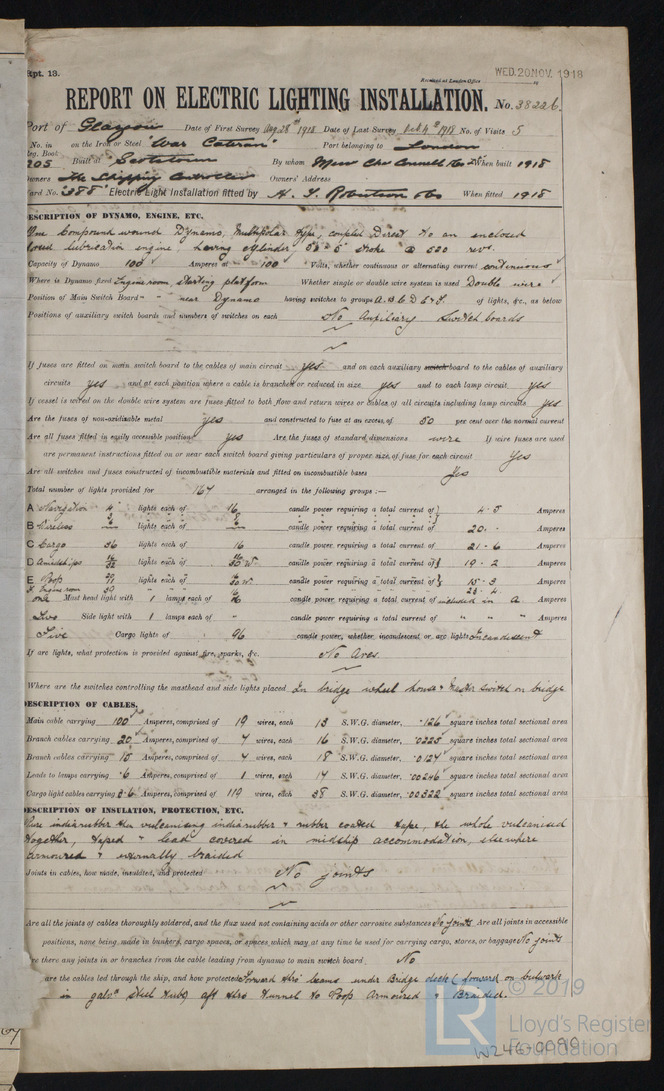 Rpt. 13.
Received at London Office WED. 20 NOV. 1918
REPORT ON ELECTRIC LIGHTING INSTALLATION. No. 38226.
Port of Glasgow Date of First Survey Aug. 28th 1918 Date of Last Survey Oct 4th 1918 No. of Visits 5
No. in on the Iron or Steel "War Cateran" Port belonging to London
Reg. Book
205 Built at Scotstoun By whom Mess Chas Connell & Co When built 1918
Owners The Shipping Controller Owners' Address
Yard No. 388 Electric Light Installation fitted by H. S. Robertson & Co When fitted 1918
DESCRIPTION OF DYNAMO, ENGINE, ETC.
One Compound wound Dynamo, Multipolar type, coupled Direct to an enclosed
forced lubrication engine, having cylinder stroke @ 520 revs.
Capacity of Dynamo 100 Amperes at 100 Volts, whether continuous or alternating current continuous
Where is Dynamo fixed Engine room, starting platform Whether single or double wire system is used Double wire
Position of Main Switch Board " " near Dynamo having switches to groups A. B. C. D. E & F. of lights, &c., as below
Positions of auxiliary switch boards and numbers of switches on each No Auxiliary Switch boards
If fuses are fitted on main switch board to the cables of main circuit Yes and on each auxiliary switch board to the cables of auxiliary
circuits yes and at each position where a cable is branched or reduced in size yes and to each lamp circuit yes
If vessel is wired on the double wire system are fuses fitted to both flow and return wires or cables of all circuits including lamp circuits Yes
Are the fuses of non-oxidizable metal yes and constructed to fuse at an excess of 50 per cent over the normal current
Are all fuses fitted in easily accessible positions yes Are the fuses of standard dimensions wire If wire fuses are used
are permanent instructions fitted on or near each switch board giving particulars of proper size of fuse for each circuit Yes
Are all switches and fuses constructed of incombustible materials and fitted on incombustible bases Yes
Total number of lights provided for 164 arranged in the following groups :—
A Navigation 4 lights each of 16 candle power requiring a total current of 4.8 Amperes
B Wireless lights each of candle power requiring a total current of 20. Amperes
C Cargo 36 lights each of 16 candle power requiring a total current of 21.6 Amperes
D Amidships lights each of candle power requiring a total current of 19.2 Amperes
E Poop lights each of candle power requiring a total current of 15.3 Amperes
F. Engine room 30 23.4
one Mast head light with 1 lamps each of candle power requiring a total current of included in A Amperes
Two Side light with 1 lamps each of " candle power requiring a total current of " " " Amperes
Five Cargo lights of 96 candle power, whether incandescent or arc lights Incandescent
If arc lights, what protection is provided against fire, sparks, &c. No Arcs.
Where are the switches controlling the masthead and side lights placed In bridge wheel house & Master Switch on bridge
DESCRIPTION OF CABLES.
Main cable carrying 100 Amperes, comprised of 19 wires, each 13 S.W.G. diameter, .126 square inches total sectional area
Branch cables carrying 20 Amperes, comprised of 7 wires, each 16 S.W.G. diameter, .0225 square inches total sectional area
Branch cables carrying 15 Amperes, comprised of 7 wires, each 18 S.W.G. diameter, .0124 square inches total sectional area
Leads to lamps carrying .6 Amperes, comprised of 1 wires, each 17 S.W.G. diameter, .00246 square inches total sectional area
Cargo light cables carrying 3.6 Amperes, comprised of 119 wires, each 38 S.W.G. diameter, .00322 square inches total sectional area
DESCRIPTION OF INSULATION, PROTECTION, ETC.
Pure indiarubber then vulcanising indiarubber & rubber coated tape, the whole vulcanised
together, taped & lead covered in midship accommodation, elsewhere
armoured & externally braided
Joints in cables, how made, insulated, and protected No joints
Are all the joints of cables thoroughly soldered, and the flux used not containing acids or other corrosive substances No joints Are all joints in accessible
positions, none being made in bunkers, cargo spaces, or spaces which may, at any time be used for carrying cargo, stores, or baggage No joints
Are there any joints in or branches from the cable leading from dynamo to main switch board No
are the cables led through the ship, and how protected Forward thro' beams under Bridge deck (forward on bulwark
in galvd steel tubes, aft thro Tunnel to Poop Armoured & Braided.
© 2019
LR
Lloyd's Register
Foundation
W246-0099